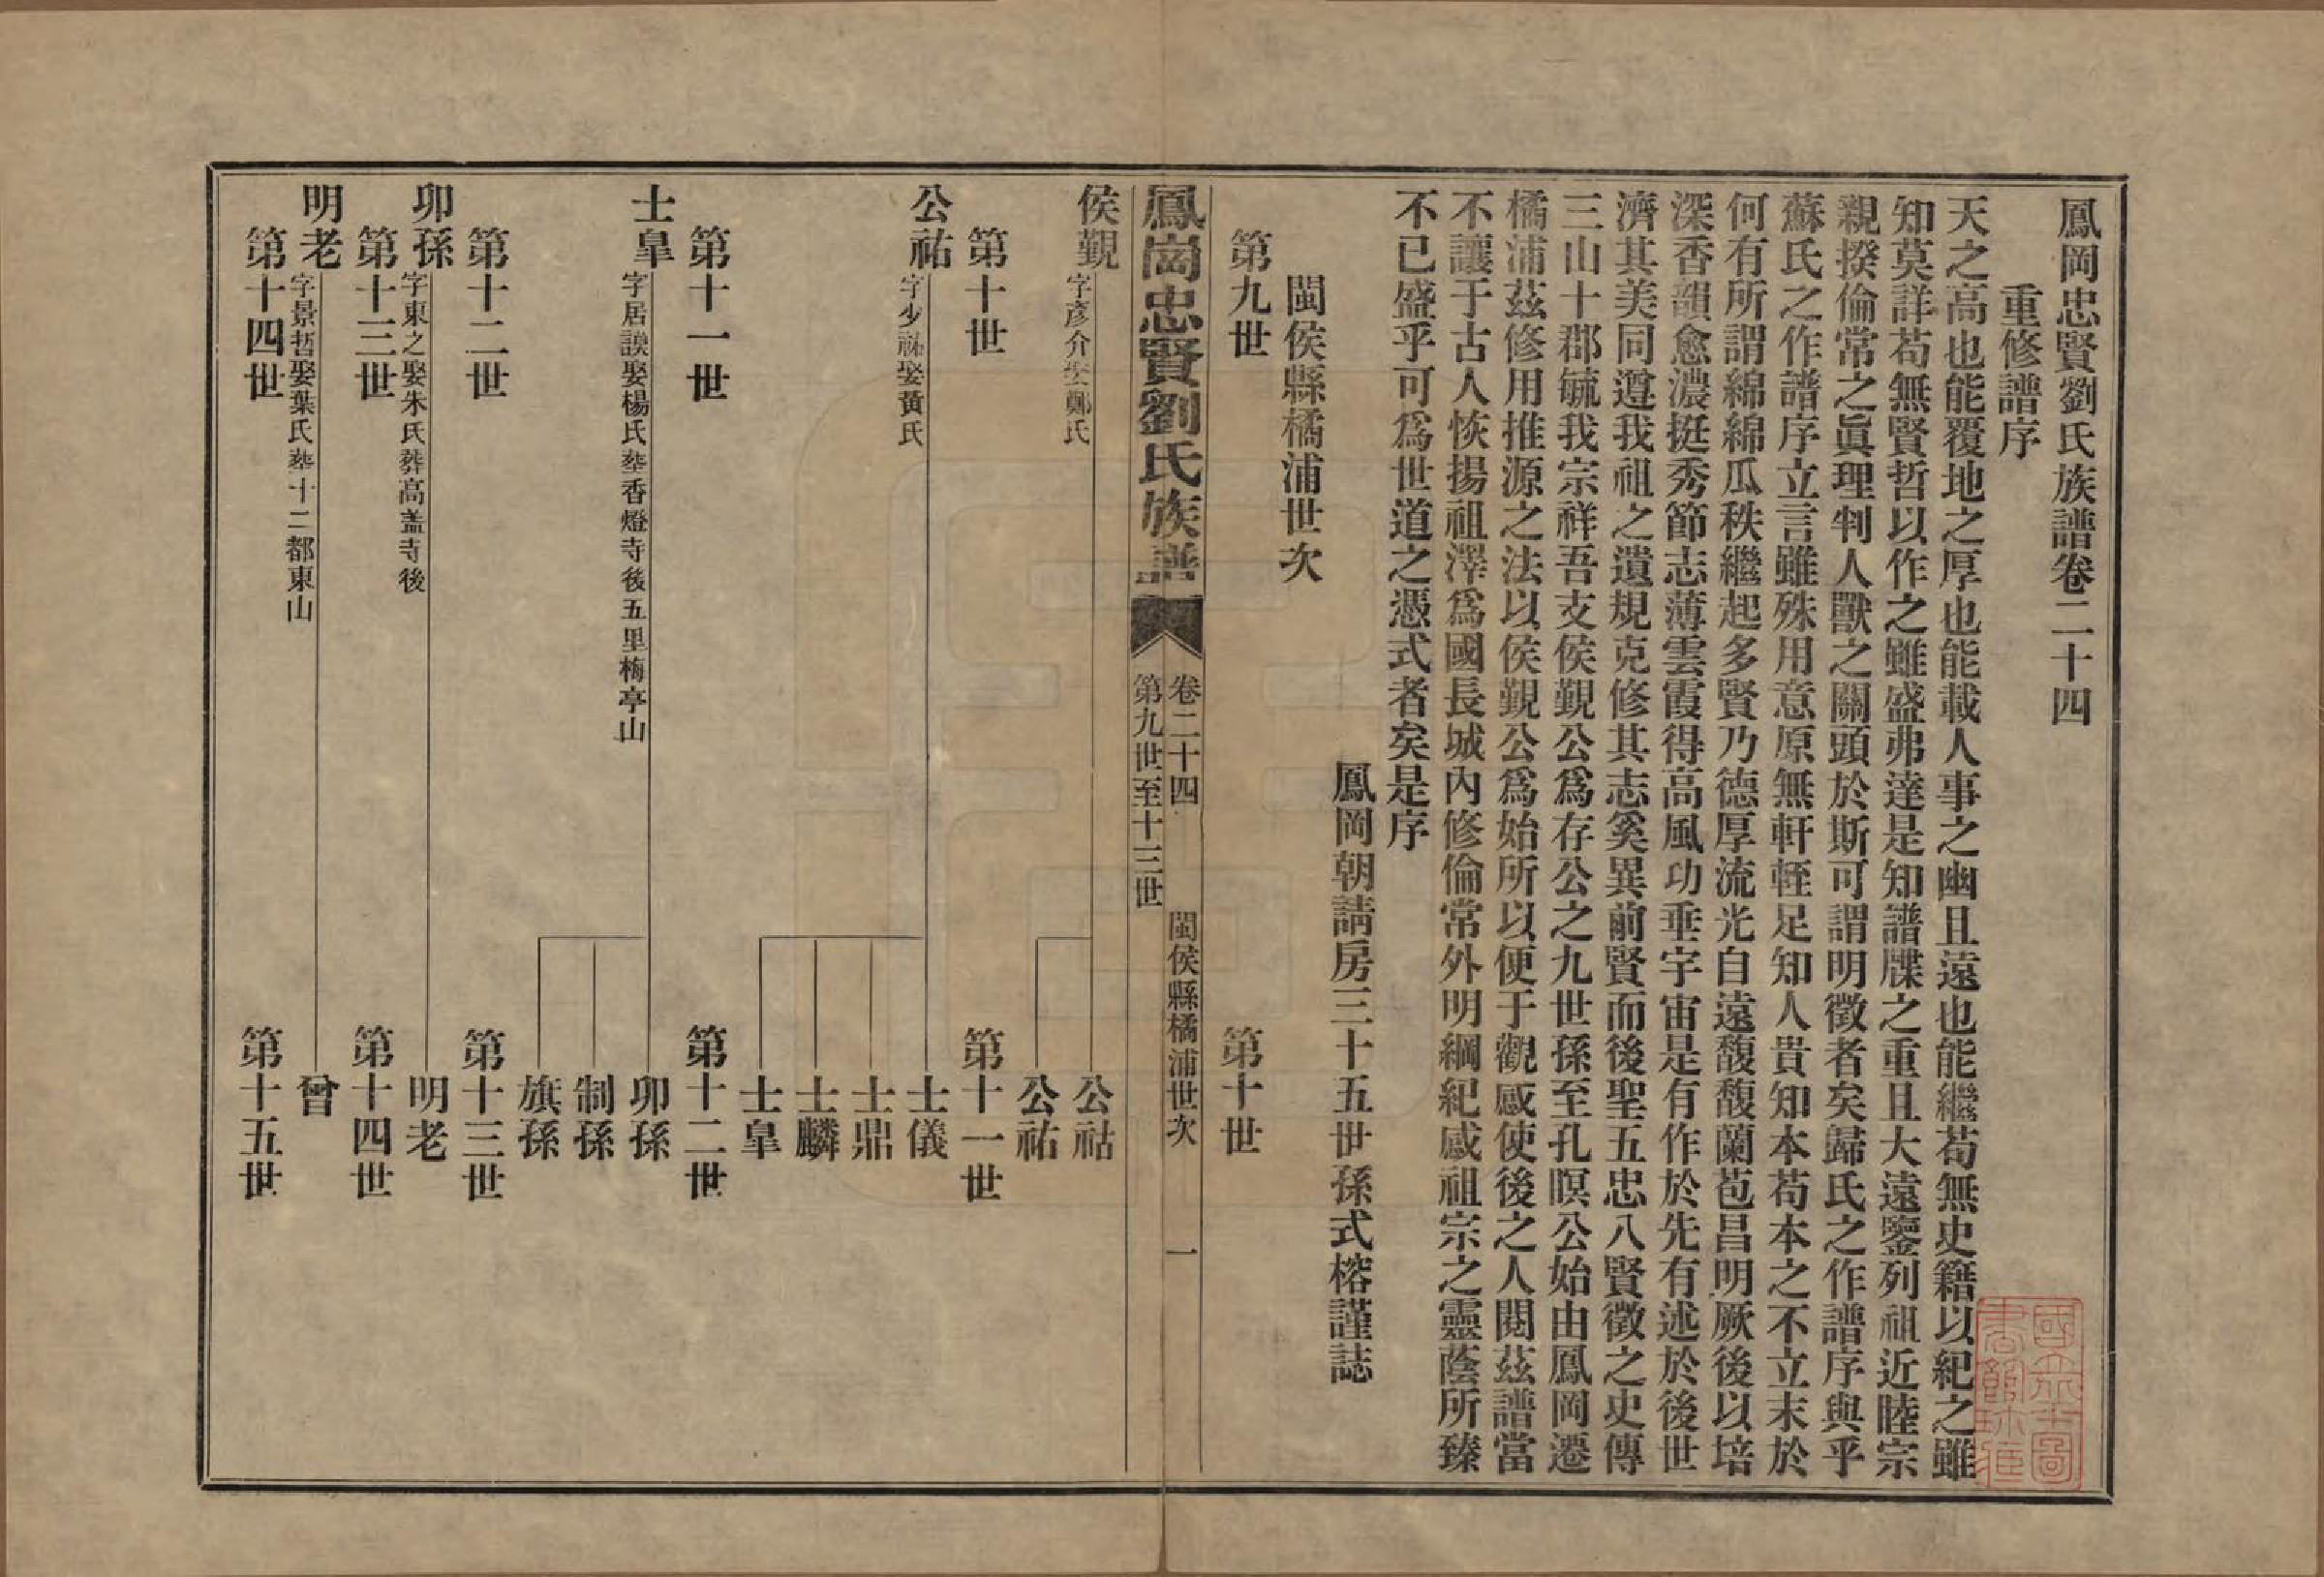 鳳岡忠賢劉氏族譜卷二十四
重修譜序
天之高也能覆地之厚也能載人事之幽且遠也能繼苟無史籍以紀之雖
知莫詳苟無賢哲以作之雖盛弗達是知譜牒之重且大遠鑒列祖近睦宗
親揆倫常之眞理判人獸之關頭於斯可謂明徵者矣歸氏之作譜序與乎
蘇氏之作譜序立言雖殊用意原無軒輊足知人貴知本苟本之不立末於
何有所謂綿綿瓜秩繼起多賢乃德厚流光自遠馥馥蘭苞昌明厥後以培
深香韻愈濃挺秀節志薄雲霞得高風功垂宇宙是有作於先有述於後世
濟其美同遵我祖之遺規克修其志奚異前賢而後聖五忠八賢徵之史傳
三山十郡毓我宗祥吾支侯覲公爲存公之九世孫至孔暝公始由鳳岡遷
橘浦茲修用推源之法以侯覲公爲始所以便于觀感使後之人閱茲譜當
不讓于古人恢揚祖澤爲國長城內修倫常外明綱紀感祖宗之靈蔭所臻
不已盛乎可爲世道之憑式者矣是序
鳳岡朝請房三十五世孫式榕謹誌
閩侯縣橘浦世次
第九世
第十世
鳳岡忠賢劉氏族譜
卷二十四
閩侯縣橘浦世次
一
第九世至十三世
侯覲
字彥介娶鄭氏
公祜
公祐
第十世
第十一世
公祐
字少祐娶黃氏
士儀
士鼎
士麟
士皐
第十一世
第十二世
士皐
字居謨娶楊氏塟香燈寺後五里梅亭山
卯孫
制孫
旗孫
第十二世
第十三世
卯孫
字東之娶朱氏葬高盖寺後
明老
第十三世
第十四世
明老
字景哲娶葉氏塟十二都東山
曾
第十四世
第十五世